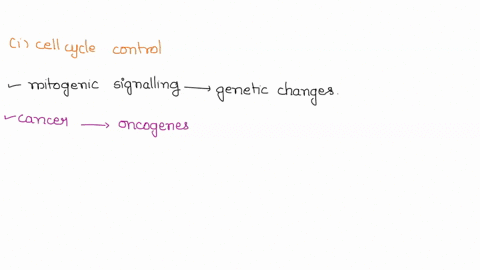 (i) cell cycle control
✓ mitogenic signalling → genetic changes.
✓ cancer → oncogenes